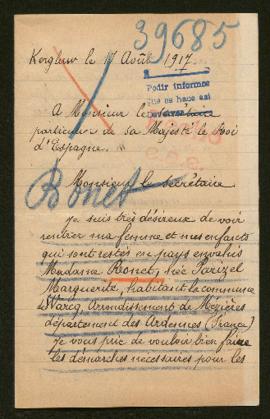 39685
Kerglaw le 17 Août 1917.
Pedir informes
que se hace así
A Monsieur le secrétaire
particulier de sa Majesté le Roi
d'Espagne.
Bonet
Monsieur le secrétaire
Je suis très désireux de voir
rentrer ma femme et mes enfants
qui sont restés en pays envahis
Madame Bonet, née Parizel
Marguerite, habitant la commune
de Warcq, Arrondissement de Mézières
département des Ardennes (France)
Je vous prie de vouloir bien faire
les démarches nécessaires pour les